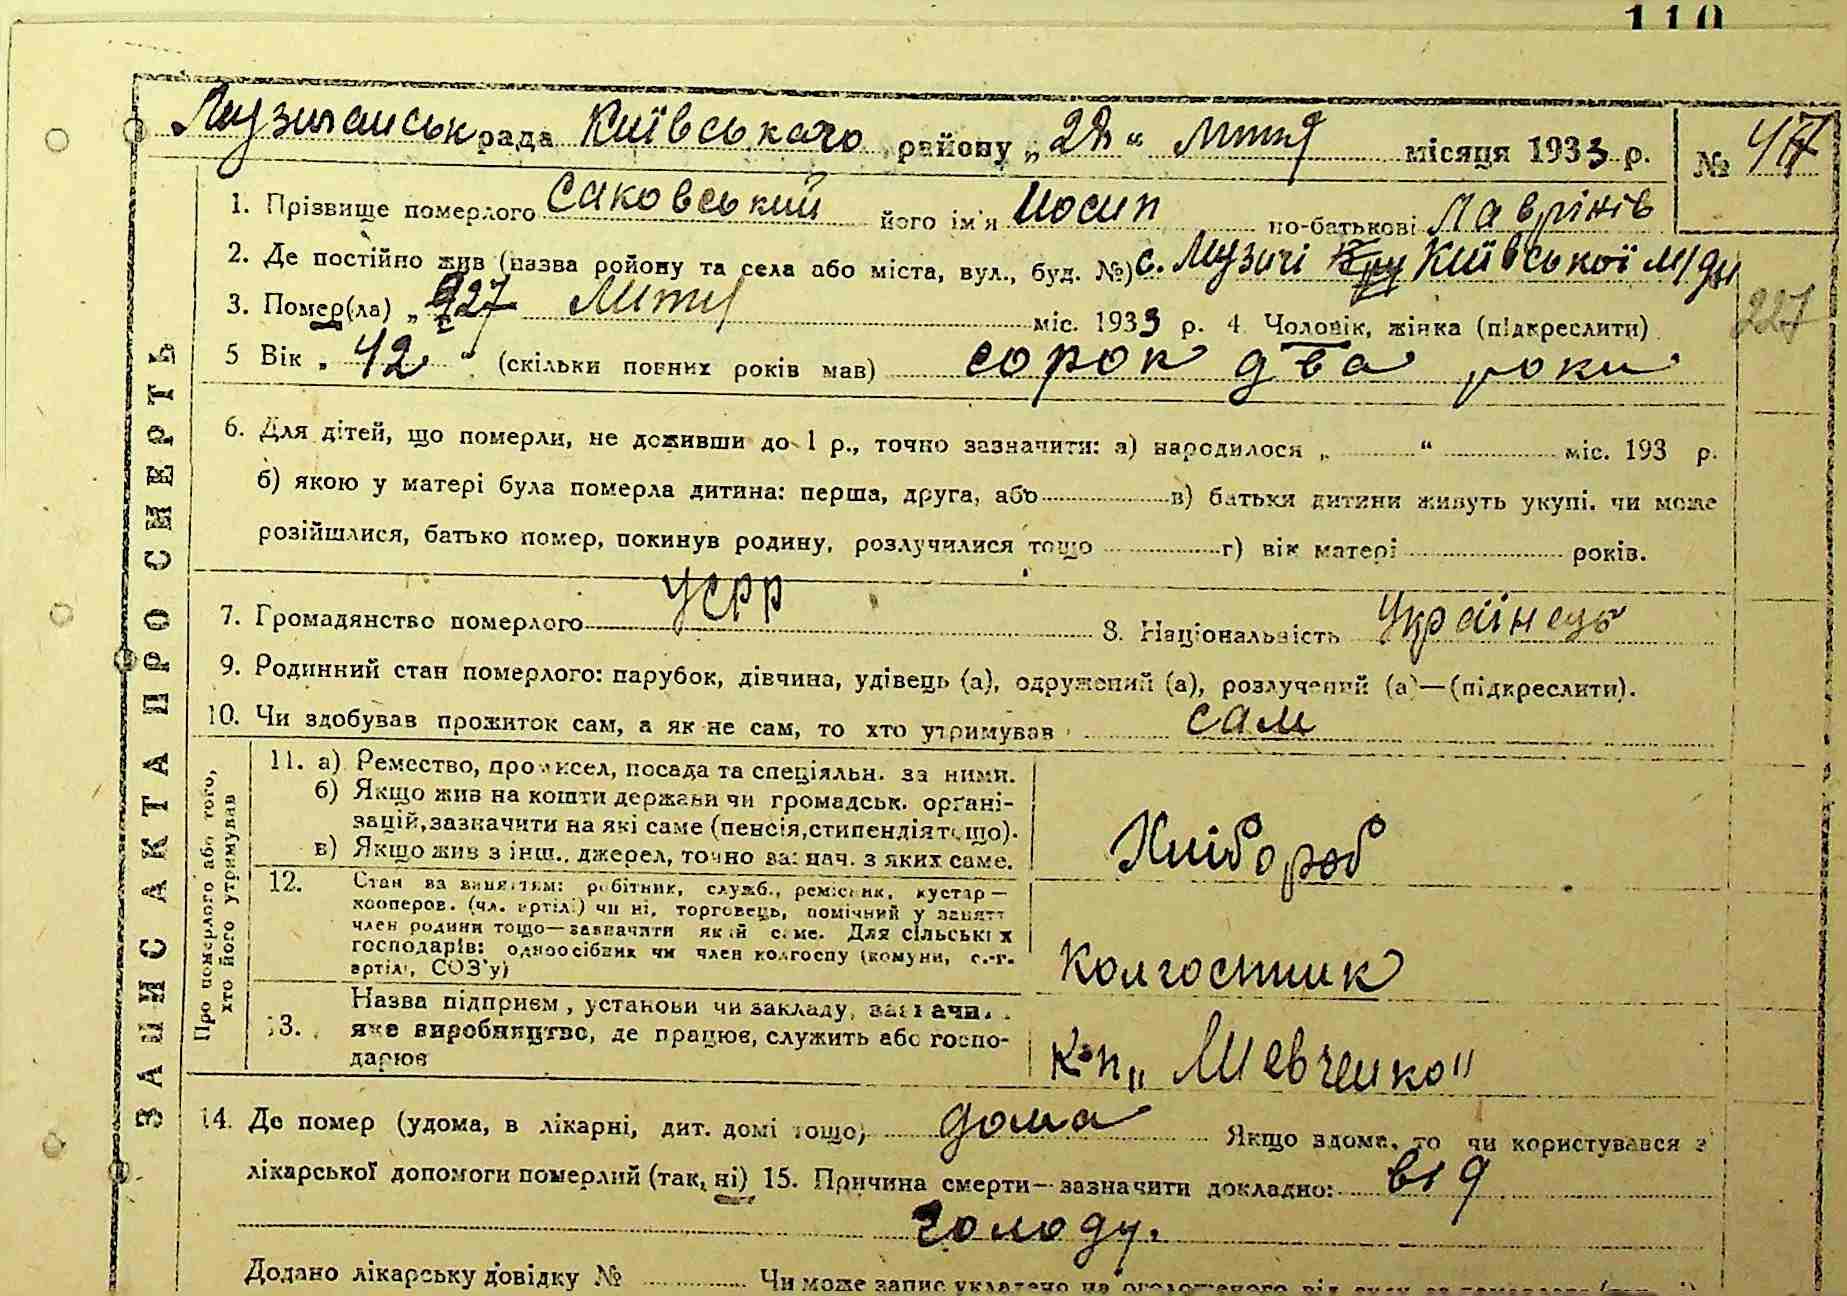 110
Музичанськ рада Київського району „28“ Лютня місяця 1933 р. № 47
1. Прізвище померлого Саковський його ім'я Йосип по-батькові Лаврінів
2. Де постійно жив (назва ройону та села або міста, вул., буд. №) с. Музичі Київської м/ди
3. Помер(ла) „27 Лютня міс. 1933 р. 4 Чоловік, жінка (підкреслити)
227
5 Вік „42“ (скільки повних років мав) сорок два роки
6. Для дітей, що померли, не доживши до 1 р., точно зазначити: а) народилося „ “ міс. 193 р.
б) якою у матері була померла дитина: перша, друга, або в) батьки дитини живуть укупі. чи може
розійшлися, батько помер, покинув родину, розлучилися тощо г) вік матері років.
7. Громадянство померлого УСРР 8. Національність Українець
9. Родинний стан померлого: парубок, дівчина, удівець (а), одружений (а), розлучений (а)—(підкреслити).
10. Чи здобував прожиток сам, а як не сам, то хто утримував сам
ЗАПИС АКТА ПРО СМЕРТЬ
Про померлого або того,
хто його утримував
11. а) Ремество, промисел, посада та спеціяльн. за ними.
б) Якщо жив на кошти держави чи громадськ. органі-
зацій, зазначити на які саме (пенсія, стипендія тощо).
в) Якщо жив з інш.. джерел, точно зазнач. з яких саме.
Хлібороб
12. Стан за заняттям: робітник, служб., ремісник, кустар—
кооперов. (чл. артілі) чи ні, торговець, помічний у занятт
член родини тощо—зазначити який саме. Для сільських
господарів: одноосібник чи член колгоспу (комуни, с.-г.
артілі, СОЗ'у)
Колгоспник
13. Назва підприєм, установи чи закладу, зазначи.
яке виробництво, де працює, служить або госпо-
дарює
к-п „Шевченко"
14. Де помер (удома, в лікарні, дит. домі тощо) дома Якщо вдома, то чи користувався з
лікарської допомоги померлий (так, ні) 15. Причина смерти—зазначити докладно: від
голоду.
Додано лікарську довідку № Чи може запис укладено на оголошеного від суду за